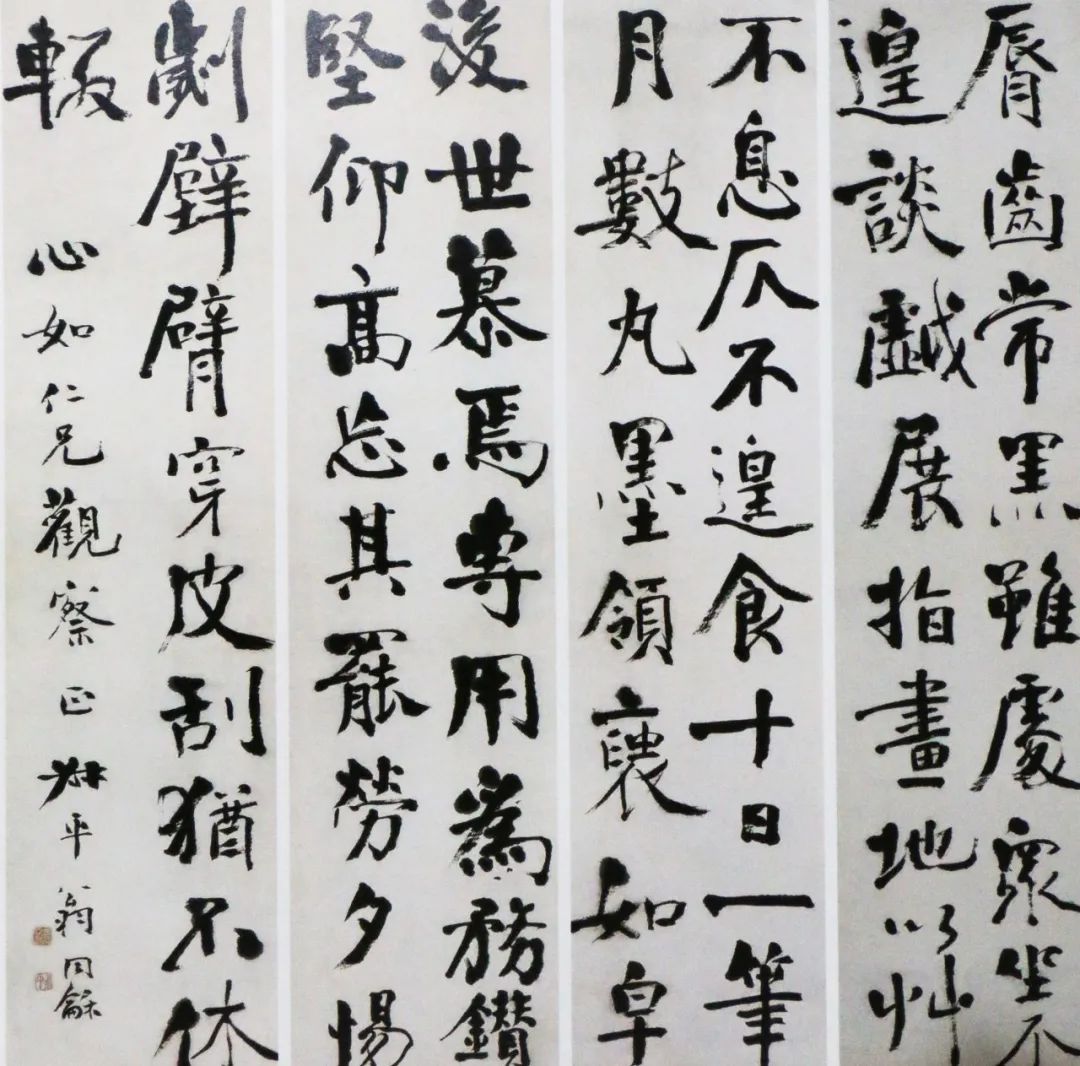 脣齒常黑雖處衆坐不
遑談戲展指畫地以艸
不息仄不遑食十日一筆
月數丸墨領褎如皁
後世慕焉專用爲務鑽
堅仰高忘其罷勞夕惕
劌壁臂穿皮刮猶不休
輟
心如仁兄觀察正 叔平翁同龢